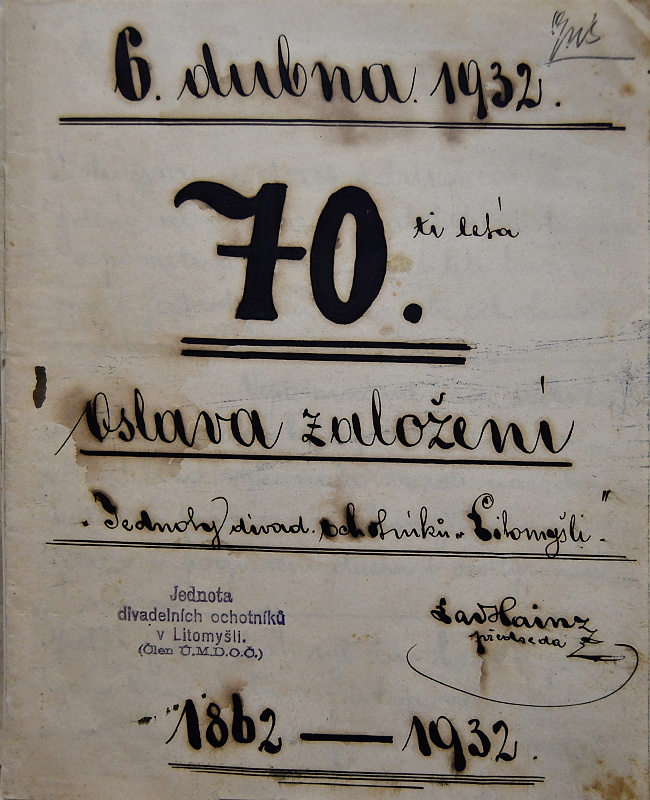 6. dubna. 1932.
70.
ti letá
Oslava založení
„Jednoty divad. ochotníků v Litomyšli."
Jednota
divadelních ochotníků
v Litomyšli.
(Člen Ú.M.D.O.Č.)
Lad Hainz
předseda
1862 — 1932.